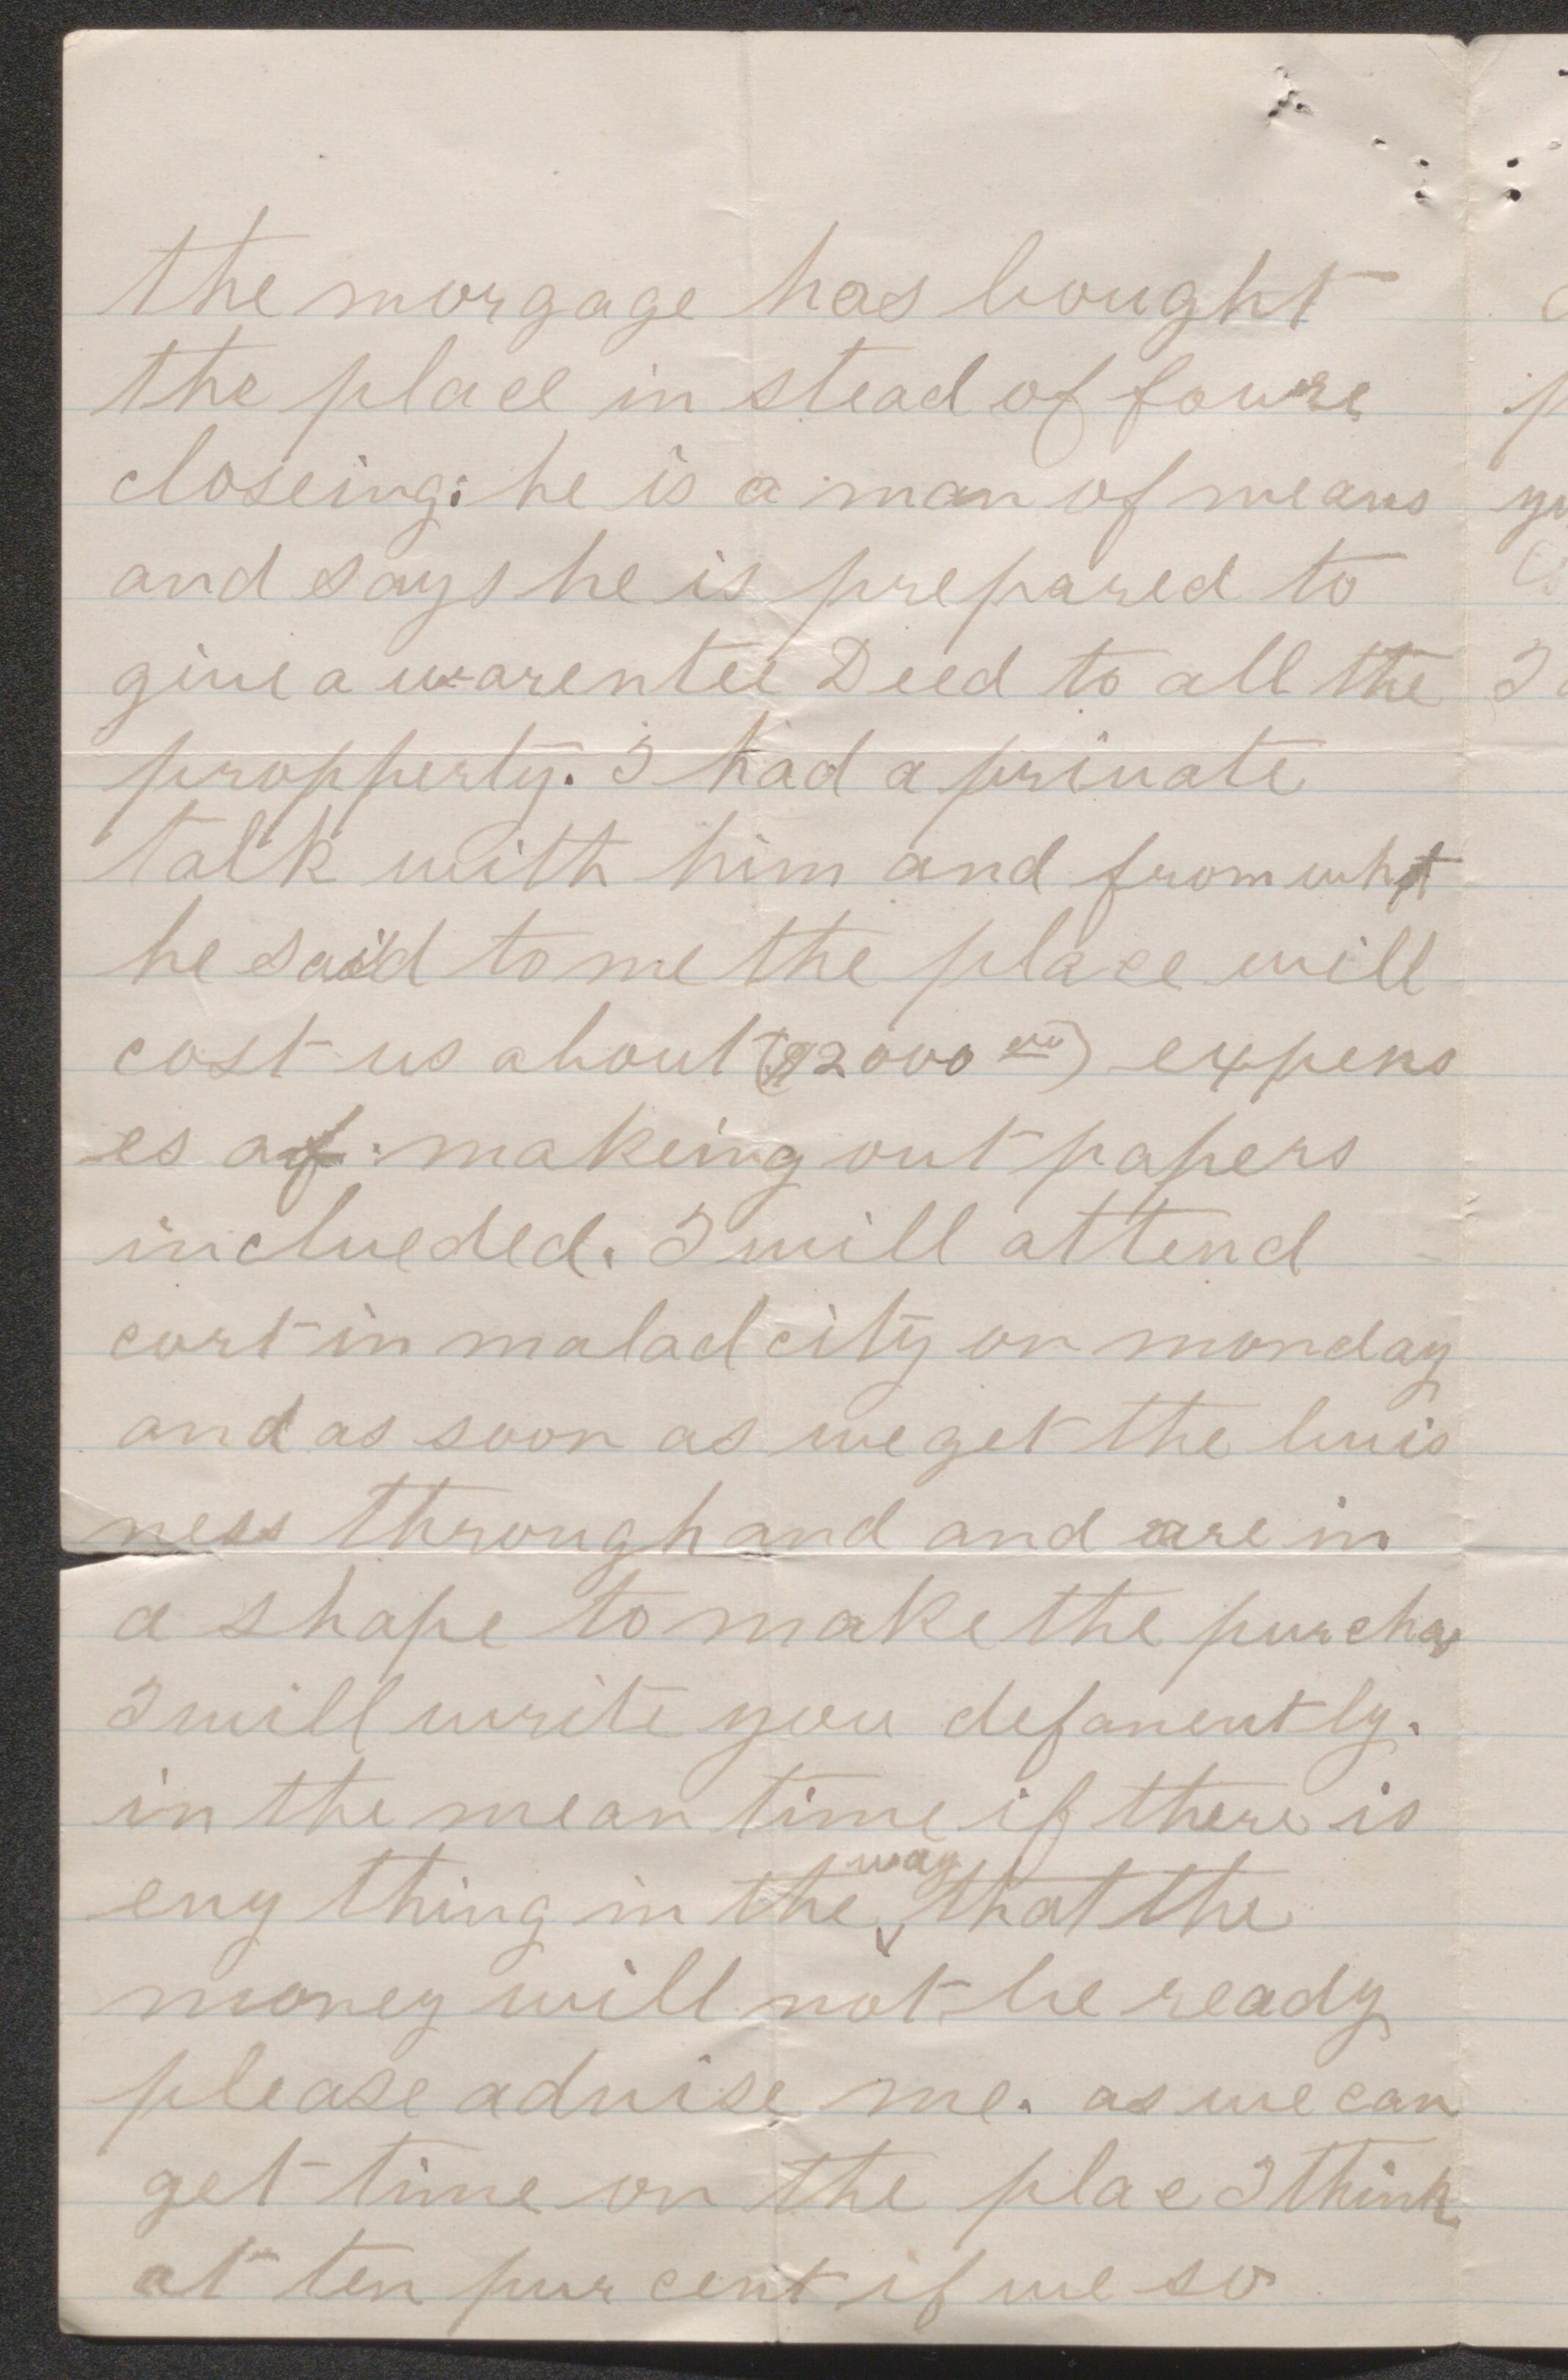 the morgage has bought
the place in stead of foure
closeing: he is a man of means
and says he is prepared to
give a warentee Deed to all the
propperty. I had a private
talk with him and from what
he said to me the place will
cost us about ($2000 00) expens
es of makeing out papers
inclueded. I will attend
cort in malad city on monday
and as soon as we get the buis
ness through and and are in
a shape to make the purchas
I will write you defanently.
in the mean time if there is
eny thing in the way that the
money will not be ready
please advise me. as we can
get time on the plac I think
at ten pur cent if we so